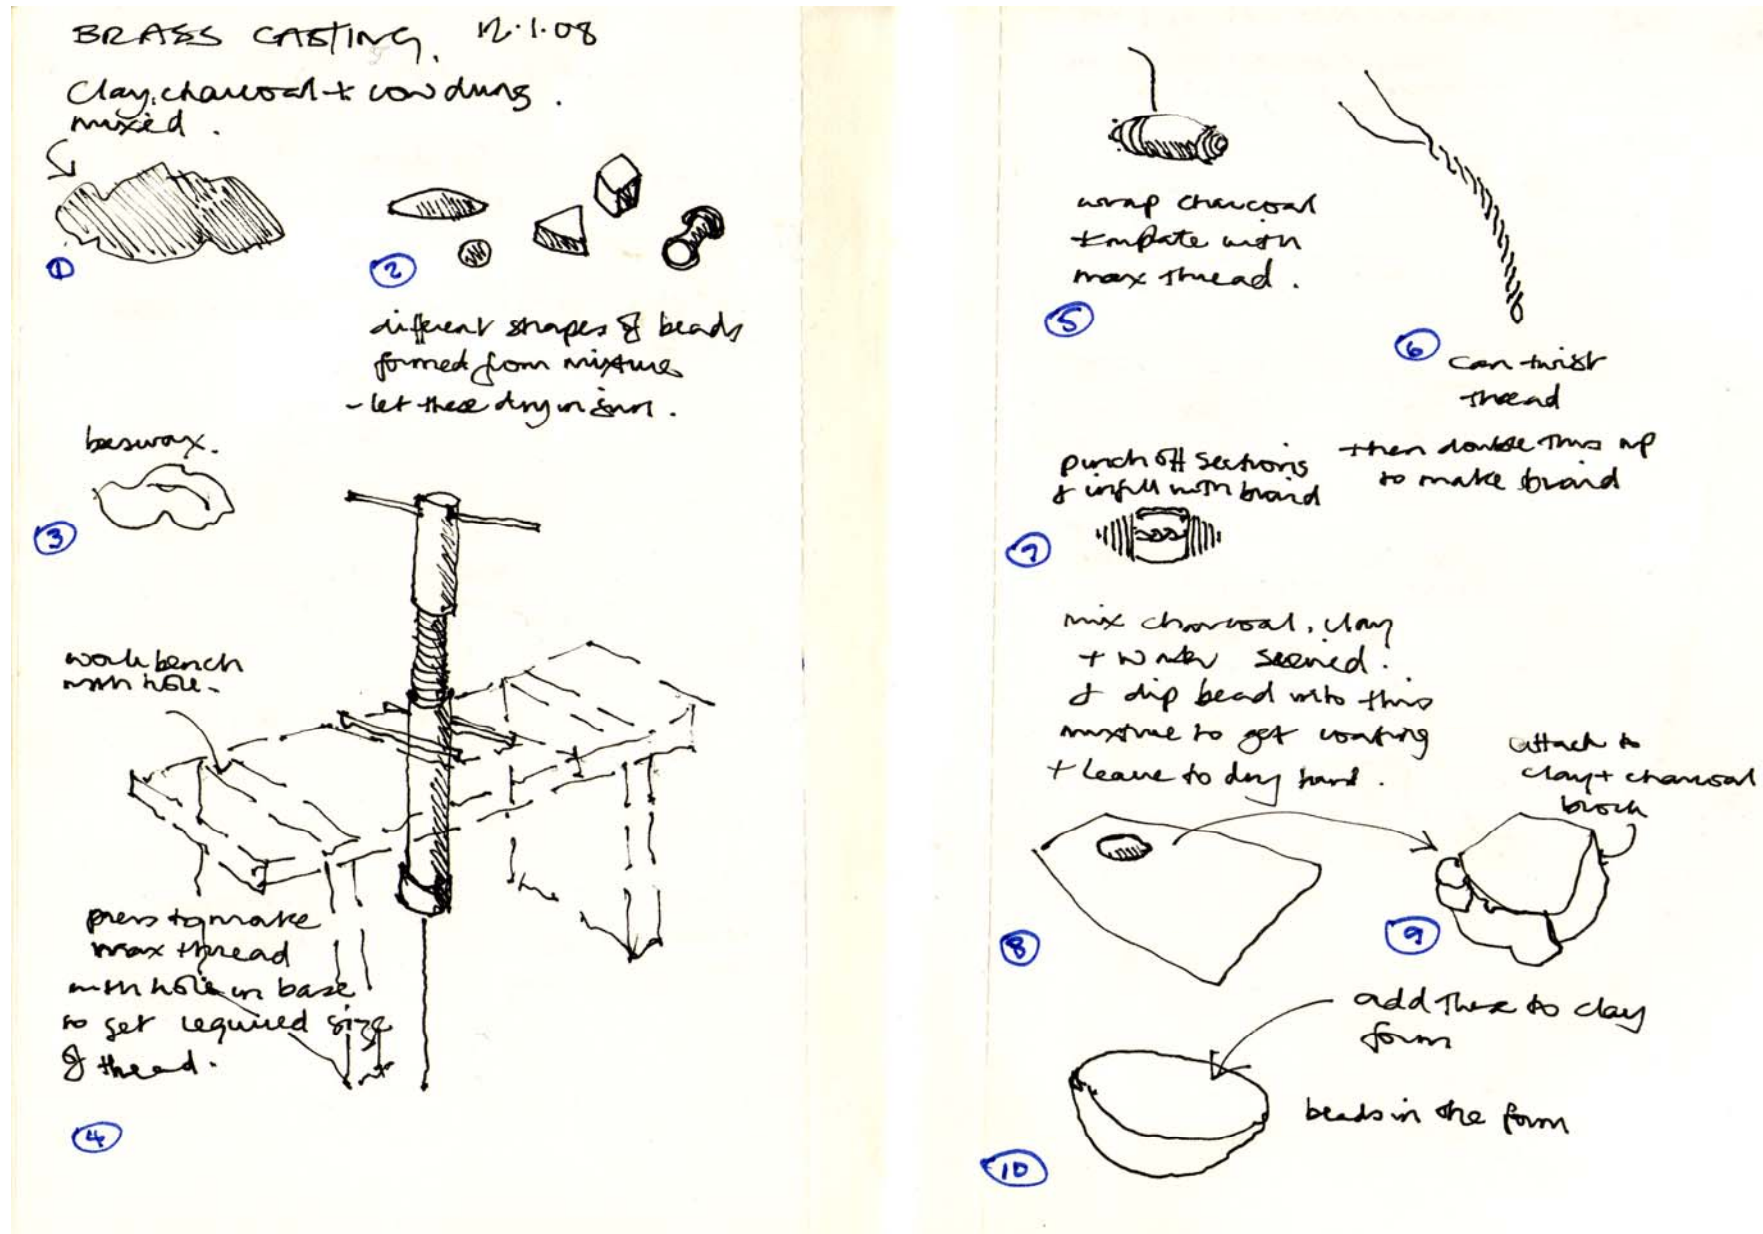 BRASS CASTING. 12.1.08
Clay, charcoal + cow dung.
mixed.
1
2
different shapes of beads
formed from mixture
- let these dry in sun.
beswax.
3
work bench
with hole.
press to make
wax thread
with hole in base
to get required size
of thread.
4
wrap charcoal
template with
wax thread.
5
6
can twist
thread
then double this up
to make braid
punch off sections
& infill with braid
7
mix charcoal, clay
+ water
& dip bead into this
mixture to get coating
+ leave to dry hard.
8
attach to
clay + charcoal
block
9
add these to clay
form
beads in the form
10